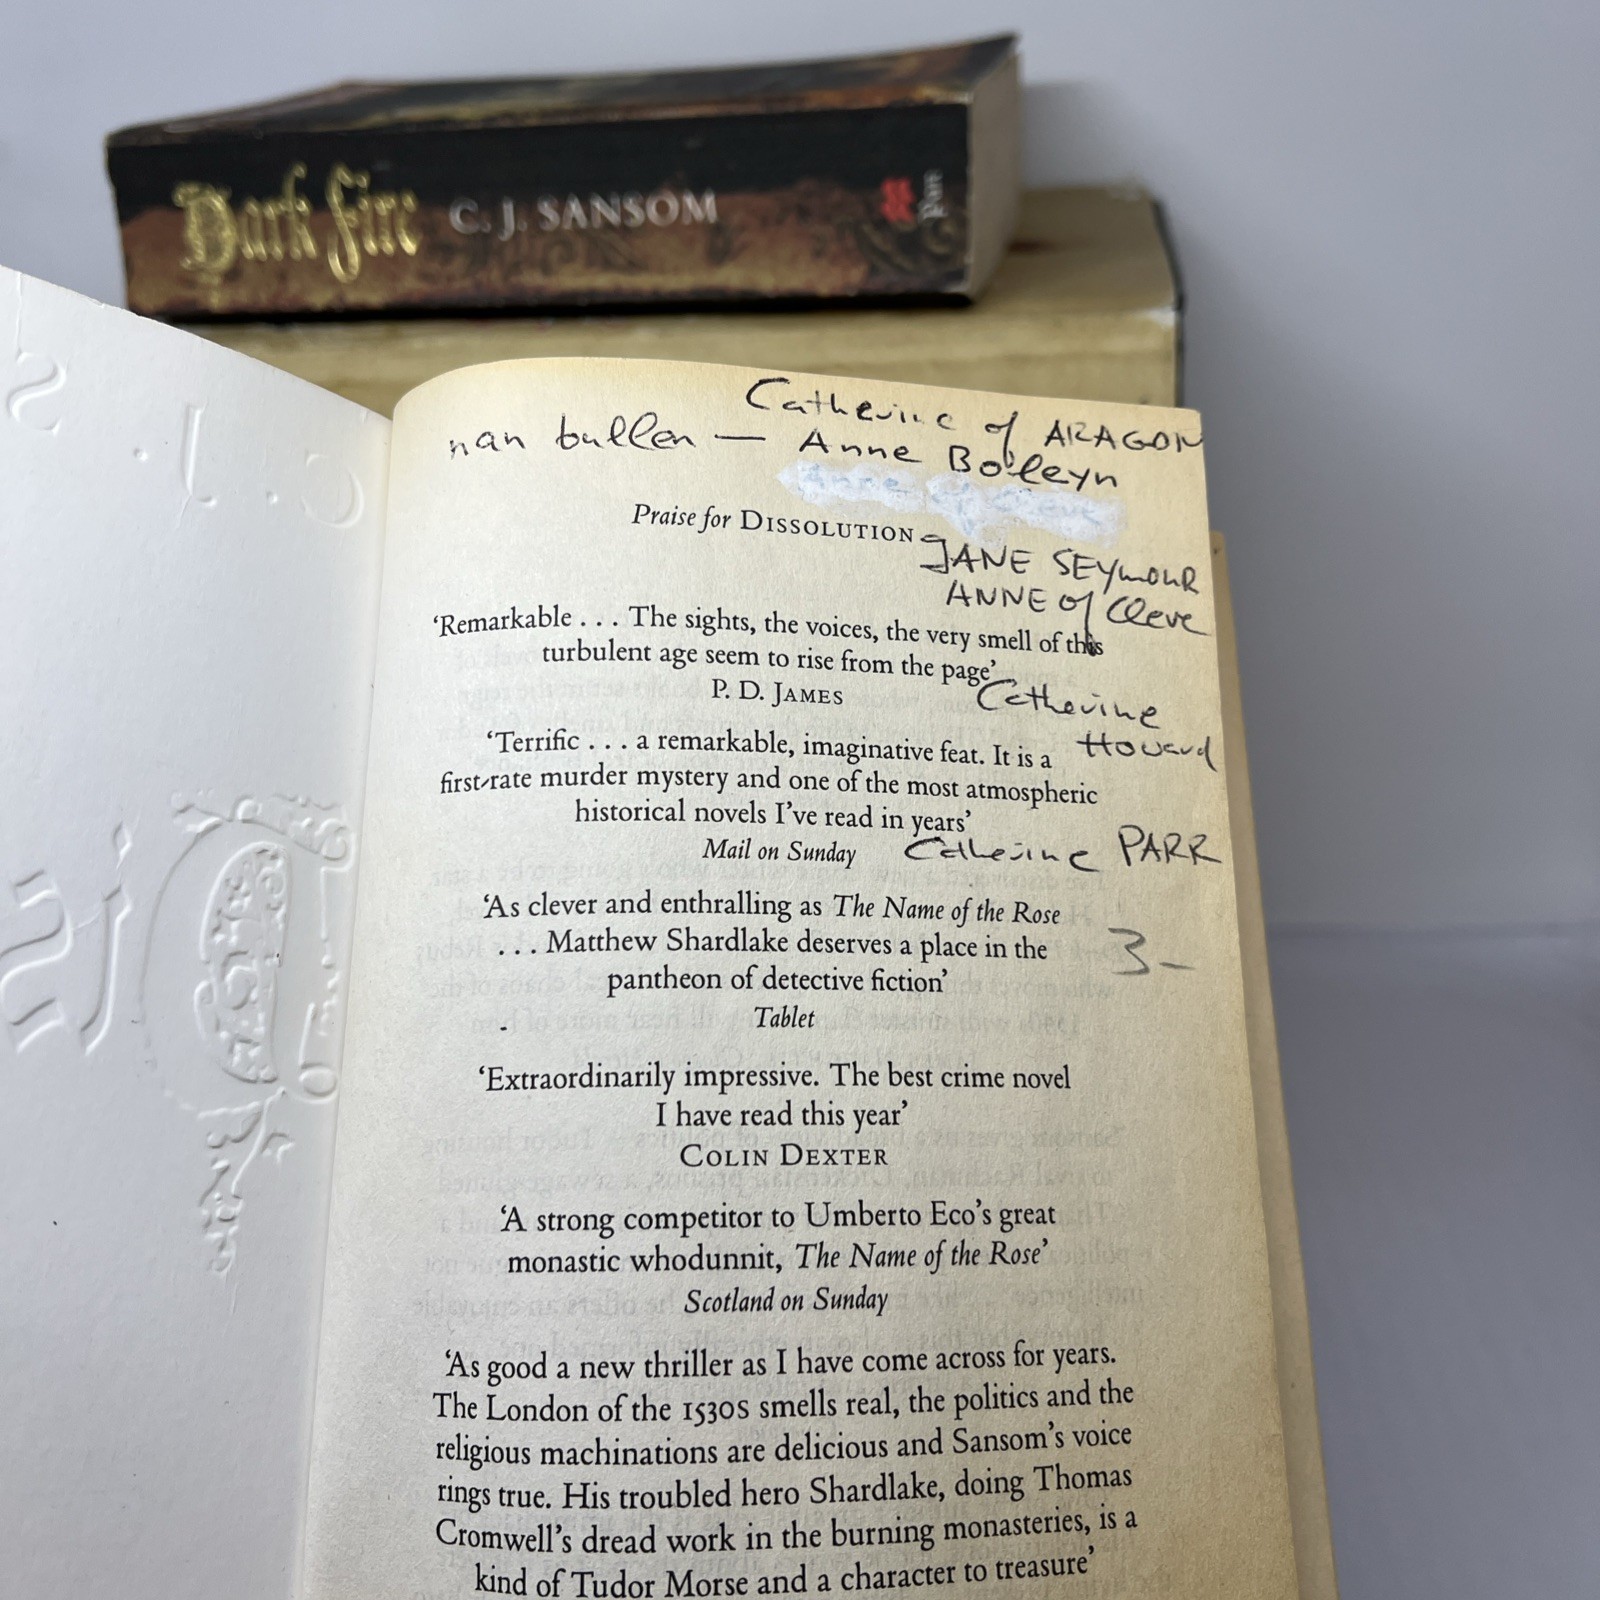 Dark Fire C. J. SANSOM Pan
Catherine of ARAGON
nan bullen — Anne Boleyn
Anne of Cleve
Praise for DISSOLUTION
JANE SEYMOUR
ANNE of Cleve
‘Remarkable . . . The sights, the voices, the very smell of this
turbulent age seem to rise from the page’
P. D. JAMES
Catherine
Howard
‘Terrific . . . a remarkable, imaginative feat. It is a
first-rate murder mystery and one of the most atmospheric
historical novels I’ve read in years’
Mail on Sunday
Catherine PARR
‘As clever and enthralling as The Name of the Rose
. . . Matthew Shardlake deserves a place in the
pantheon of detective fiction’
Tablet
3–
‘Extraordinarily impressive. The best crime novel
I have read this year’
COLIN DEXTER
‘A strong competitor to Umberto Eco’s great
monastic whodunnit, The Name of the Rose’
Scotland on Sunday
‘As good a new thriller as I have come across for years.
The London of the 1530s smells real, the politics and the
religious machinations are delicious and Sansom’s voice
rings true. His troubled hero Shardlake, doing Thomas
Cromwell’s dread work in the burning monasteries, is a
kind of Tudor Morse and a character to treasure’